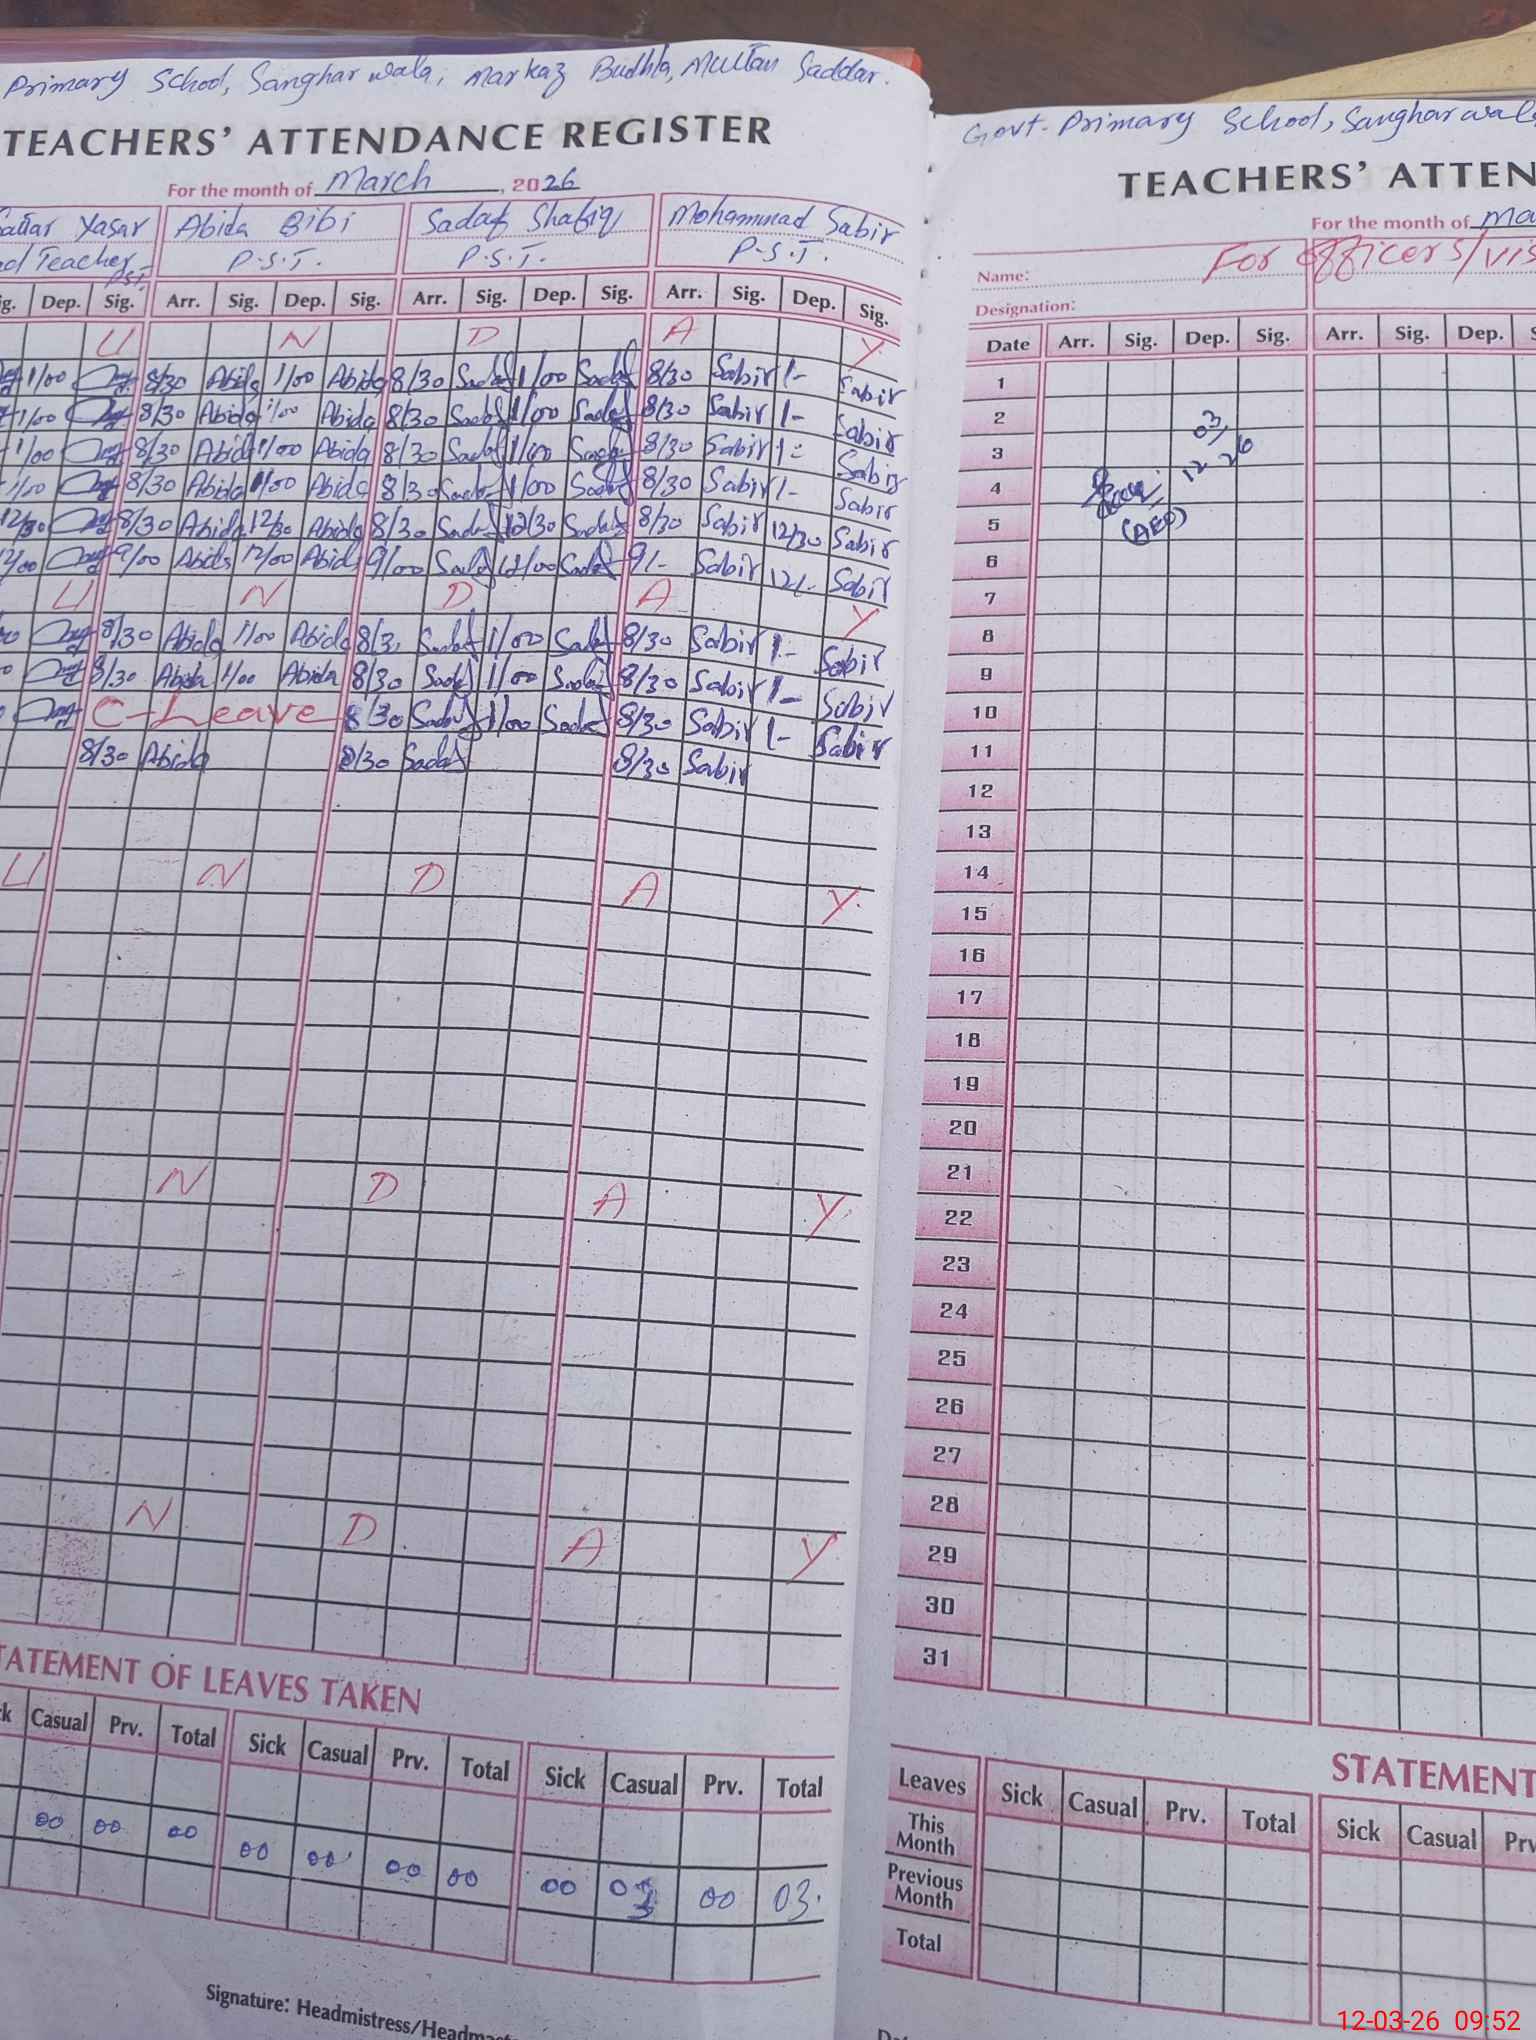 Primary School, Sanghar wala, Markaz Budhla, Multan Saddar.
TEACHERS' ATTENDANCE REGISTER
For the month of March, 2026
Yasar Abida Bibi Sadaf Shafiq Mohammad Sabir
Teacher P.S.T. P.S.T. P.S.T. P.S.T.
Dep. Sig. Arr. Sig. Dep. Sig. Arr. Sig. Dep. Sig. Arr. Sig. Dep. Sig.
U N D A Y
1/00 8/30 Abida 1/00 Abida 8/30 Sadaf 1/00 Sadaf 8/30 Sabir 1/- Sabir
1/00 8/30 Abida 1/00 Abida 8/30 Sadaf 1/00 Sadaf 8/30 Sabir 1/- Sabir
1/00 8/30 Abida 1/00 Abida 8/30 Sadaf 1/00 Sadaf 8/30 Sabir 1/- Sabir
1/00 8/30 Abida 1/00 Abida 8/30 Sadaf 1/00 Sadaf 8/30 Sabir 1/- Sabir
12/30 8/30 Abida 12/30 Abida 8/30 Sadaf 12/30 Sadaf 8/30 Sabir 12/30 Sabir
12/00 9/00 Abida 12/00 Abida 9/00 Sadaf 12/00 Sadaf 9/- Sabir 12/- Sabir
U N D A Y
8/30 Abida 1/00 Abida 8/30 Sadaf 1/00 Sadaf 8/30 Sabir 1/- Sabir
8/30 Abida 1/00 Abida 8/30 Sadaf 1/00 Sadaf 8/30 Sabir 1/- Sabir
C-Leave 8/30 Sadaf 1/00 Sadaf 8/30 Sabir 1/- Sabir
8/30 Abida 8/30 Sadaf 8/30 Sabir
U N D A Y
N D A Y
N D A Y
STATEMENT OF LEAVES TAKEN
Casual Prv. Total Sick Casual Prv. Total Sick Casual Prv. Total
00 00 00 00 00 00 00 00 03 00 03.
Signature: Headmistress/
Govt. Primary School, Sanghar wala
TEACHERS' ATTEN
For the month of
Name: For officers/vis
Designation:
Date Arr. Sig. Dep. Sig. Arr. Sig. Dep.
1
2
3
4
5
6
7
8
9
10
11
12
13
14
15
16
17
18
19
20
21
22
23
24
25
26
27
28
29
30
31
12 03 26
(AEO)
STATEMENT
Leaves Sick Casual Prv. Total Sick Casual
This Month
Previous Month
Total
12-03-26 09:52